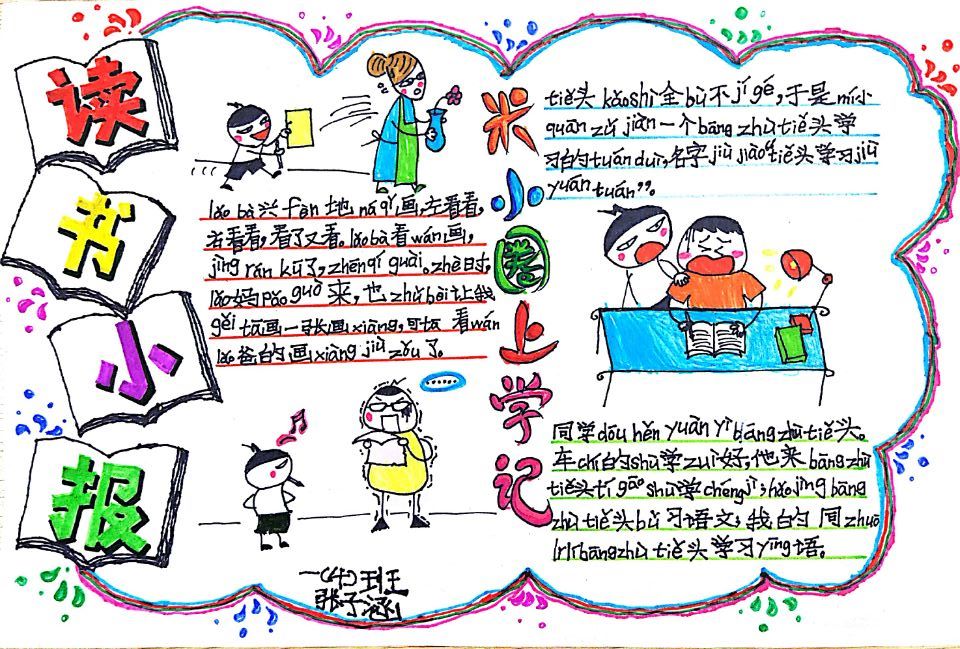 读书小报
米小圈上学记
lǎo bà兴fèn地 ná qǐ画,左看看,
右看看,看了又看。lǎo bà看wán画,
jìng rán kū了,zhēn qí guài。zhè时,
lǎo妈pǎo guò来,也zhǔn bèi让我
gěi tā画一张画xiàng,可tā 看wán
lǎo爸的画xiàng jiù zǒu了。
tiě头 kǎo shì 全bù不jí gé,于是mǐ小
quān zǔ jiàn一个bāng zhù tiě头学
习的tuán duì,名字jiù jiào“tiě头学习jiù
yuán tuán”。
同学dōu hěn yuàn yì bāng zhù tiě头。
车chí的shù学zuì好,他来bāng zhù
tiě头tí gāo shù学chéng jì;hǎo jìng bāng
zhù tiě头bǔ习语文,我的同zhuō
lǐ lǐ bāng zhù tiě头学习yīng语。
一(4)班
张子涵